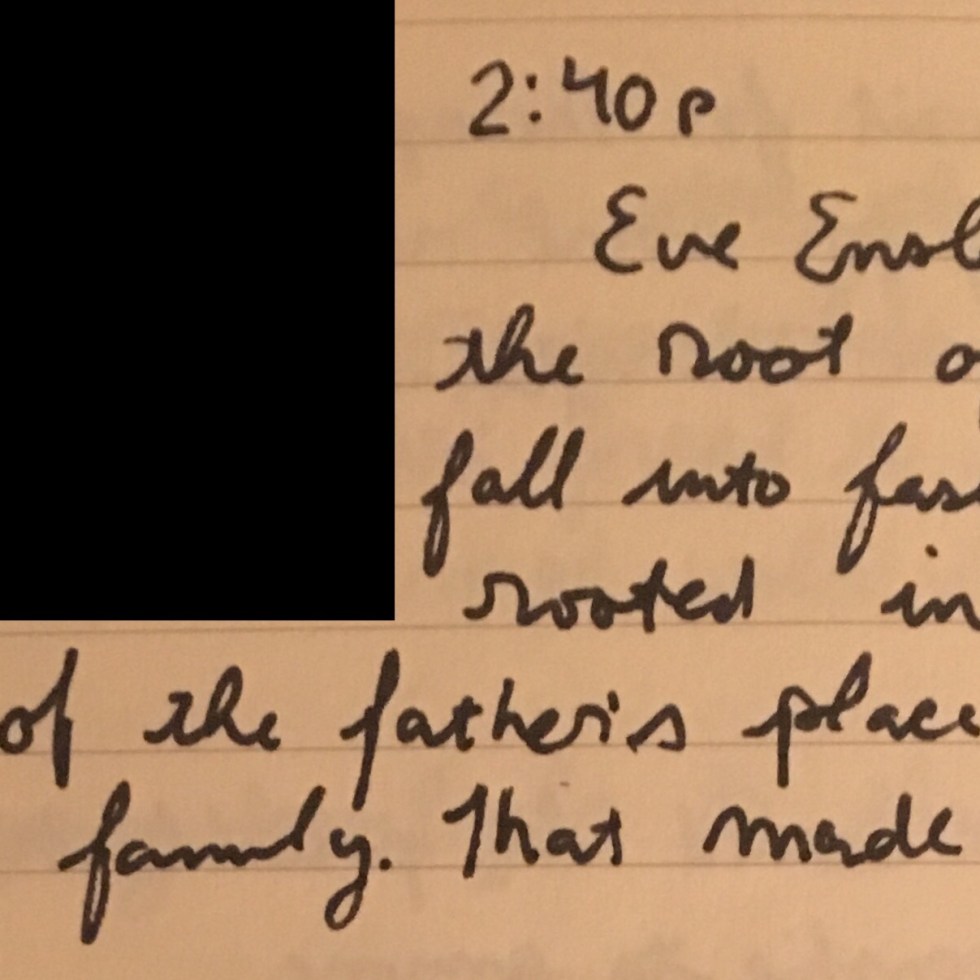 2:40p
Eve Ensl
the root o
fall into fas
rooted in
of the father's place
family. That made